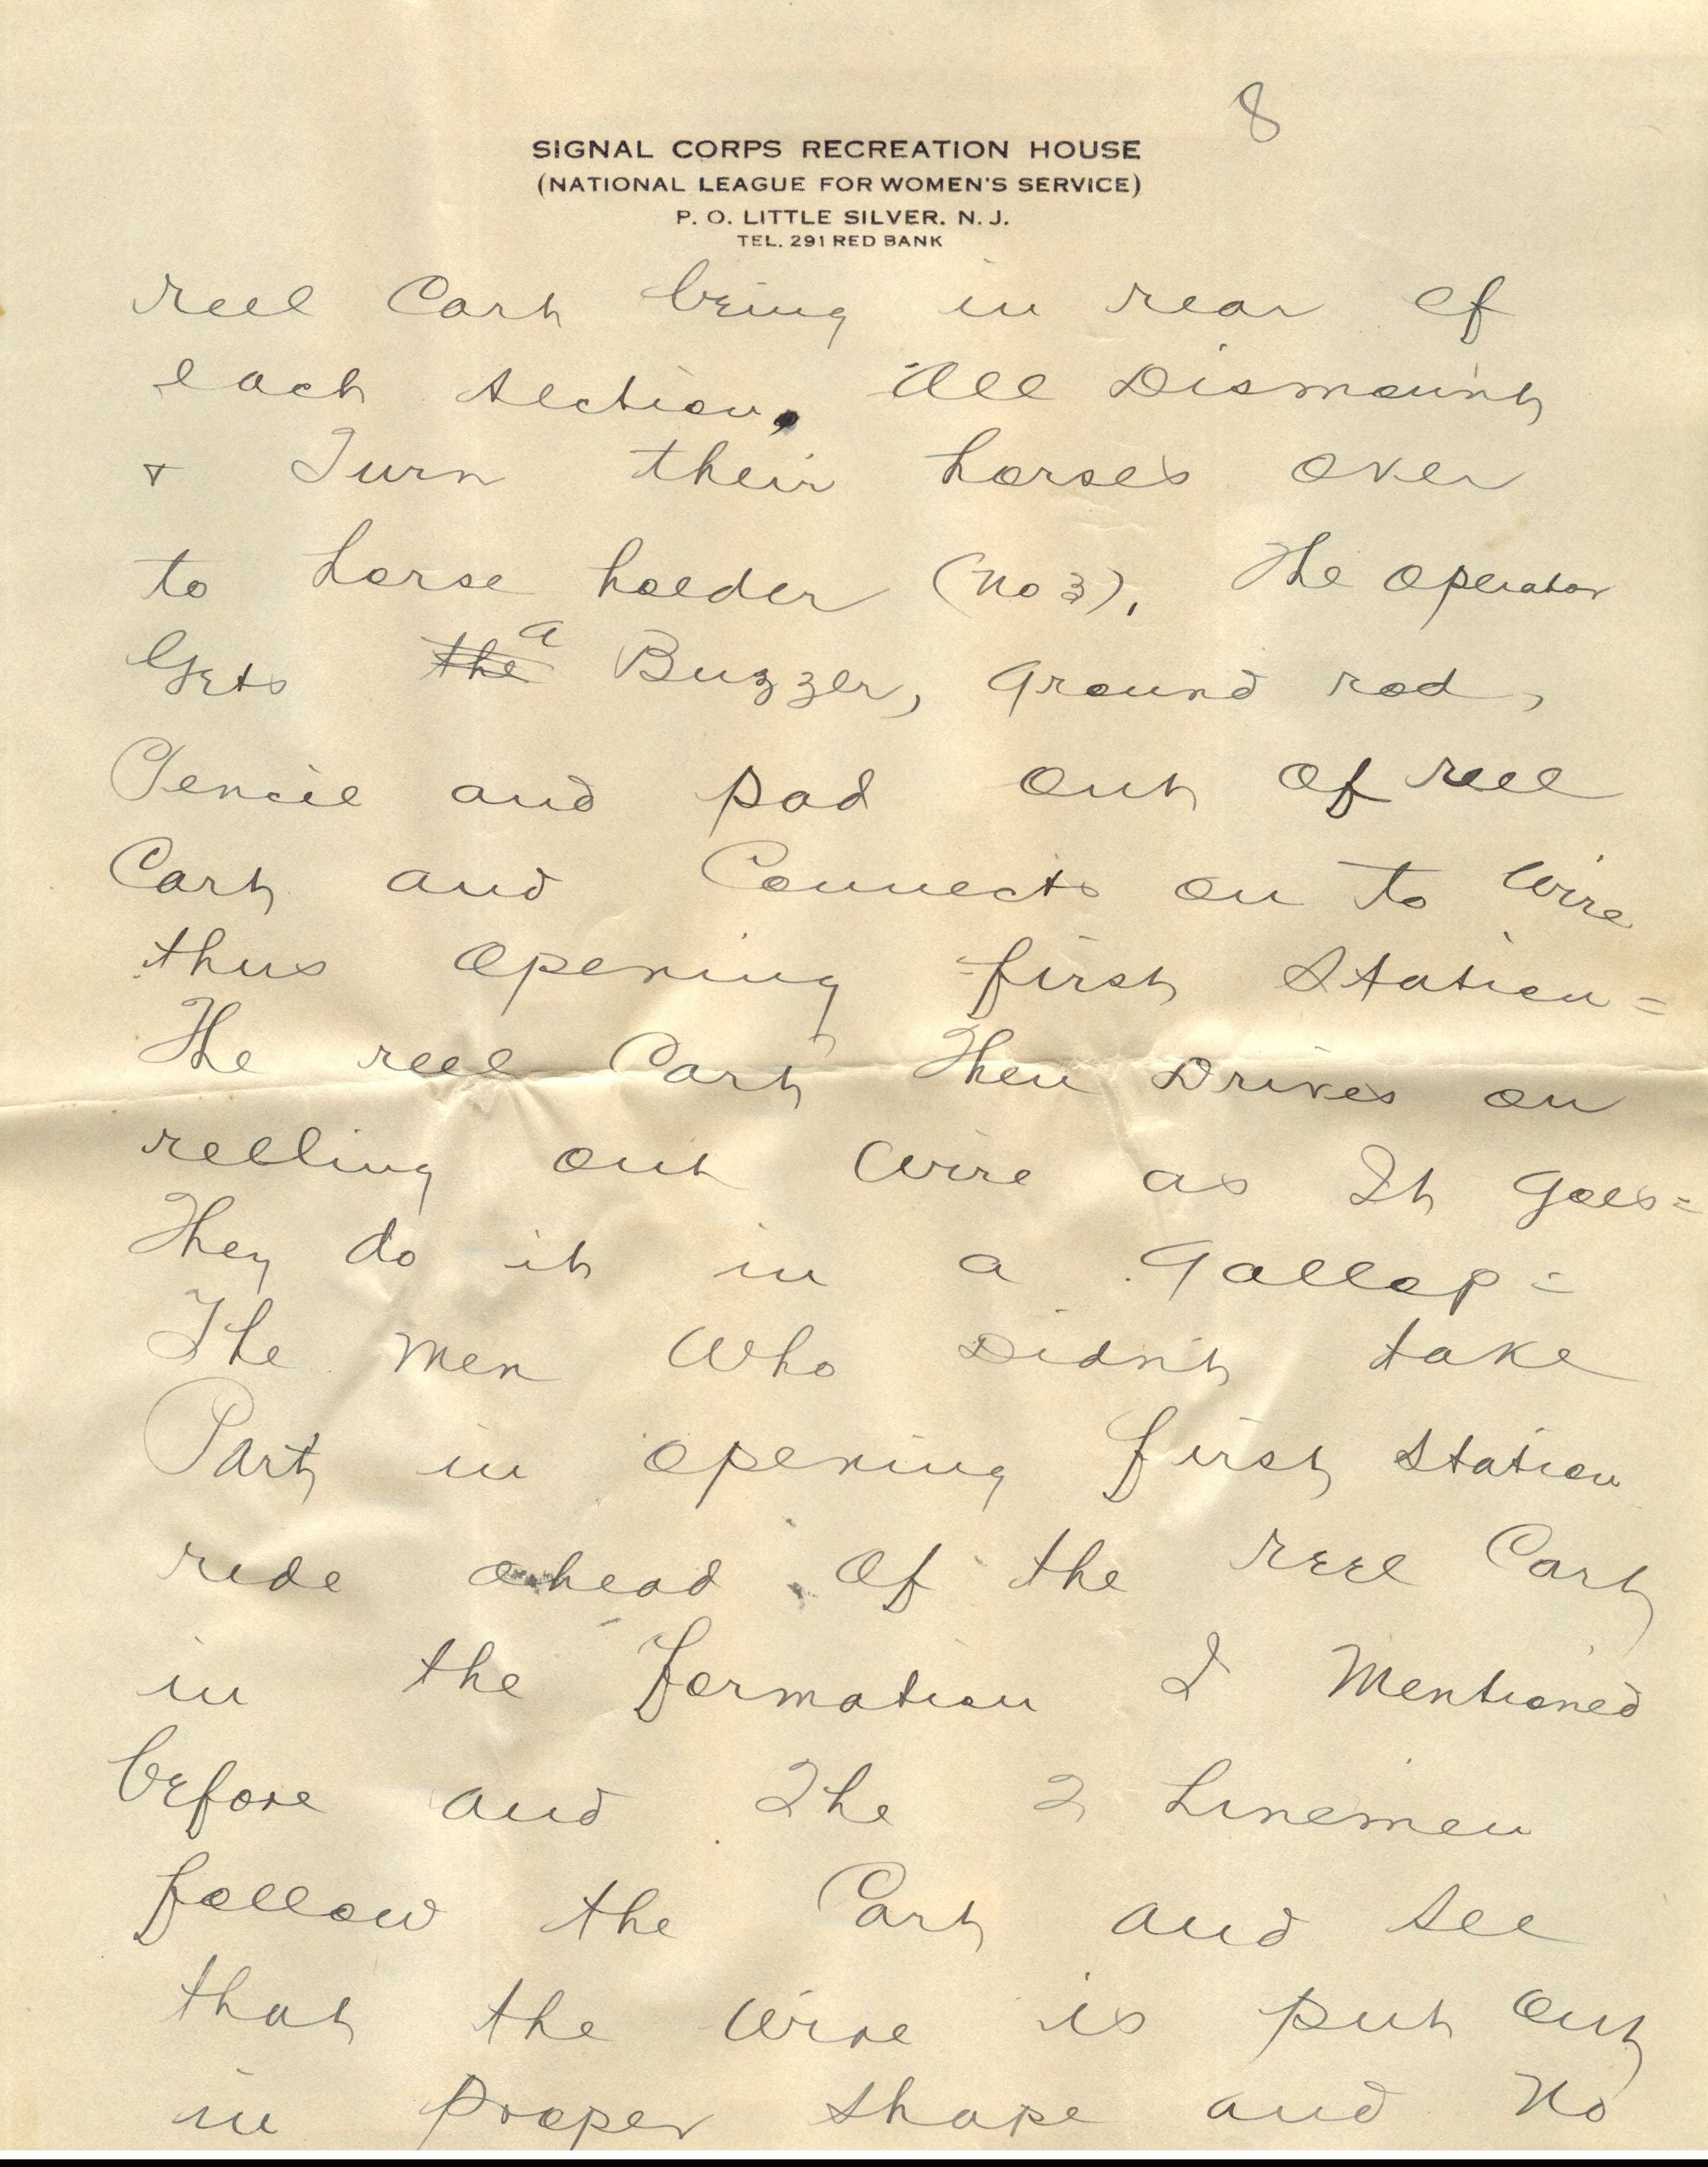 8
SIGNAL CORPS RECREATION HOUSE
(NATIONAL LEAGUE FOR WOMEN'S SERVICE)
P. O. LITTLE SILVER, N. J.
TEL. 291 RED BANK
reel Cart being in rear of
each section, All Dismount
& Turn their horses over
to horse holder (No 3), The operator
Gets the a Buzzer, ground rod,
Pencil and pad out of reel
Cart and Connects on to wire
thus opening first station =
The reel Cart Then Drives on
reeling out wire as It goes =
They do it in a gallop =
The men who Didnt take
Part in opening first station
ride ahead of the reel Cart
in the formation I Mentioned
before and The 2 Linemen
follow the Cart and see
that the wire is put out
in proper shape and No